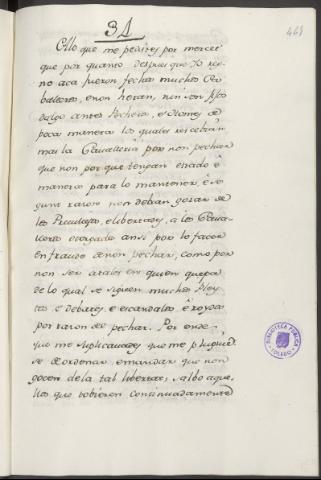 31
461
Otro que me pedistes por mercet
que por quanto despues que Yo rey-
no aca fueron fechos muchos Ca-
balleros, e non heran, nin son fijos
dalgo antes Pecheros, e Homes de
poca manera los quales rescebian
mas la Cavalleria por non pechar
que non por que tengan estado é
manera para lo mantener, é se-
gunt razon non deban gozar de
los Previllejos, e libertades, a los Cava-
lleros otorgado ansi por lo facer
en fraude de non pechar, como por
non ser atales en quien quepa
de lo qual se siguen muchos Pley-
tos e debates, e escandalos é roydos
por razon del pechar. Por ende
que me suplicavades que me pluguie-
se de ordenar e mandar que non
gocen de la tal libertat, salbo aque-
llos que tobieren continuadamente
BIBLIOTECA PUBLICA
TOLEDO